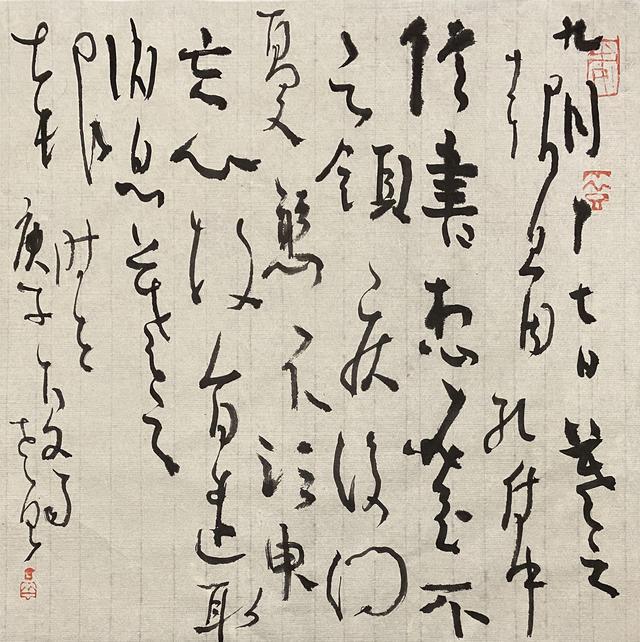 九月十七日羲之
報且因孔侍中
信書想必至不
知領軍疾後問
憂懸不能須臾
忘心故旨遣取
消息羲之
報
庚子